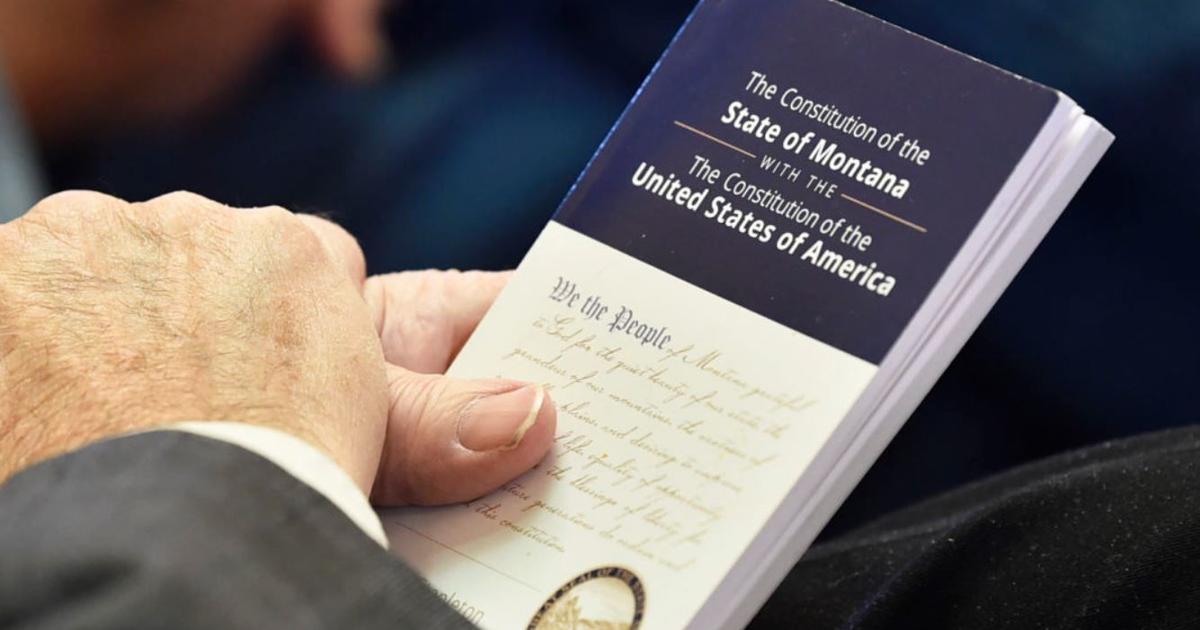 The Constitution of the
State of Montana
WITH THE
The Constitution of the
United States of America
We the People of Montana grateful
to God for the quiet beauty of our state, the
grandeur of our mountains, the vastness of
plains, and desiring to
life, equality of opportunity
the blessings of liberty for
future generations do ordain and
this constitution